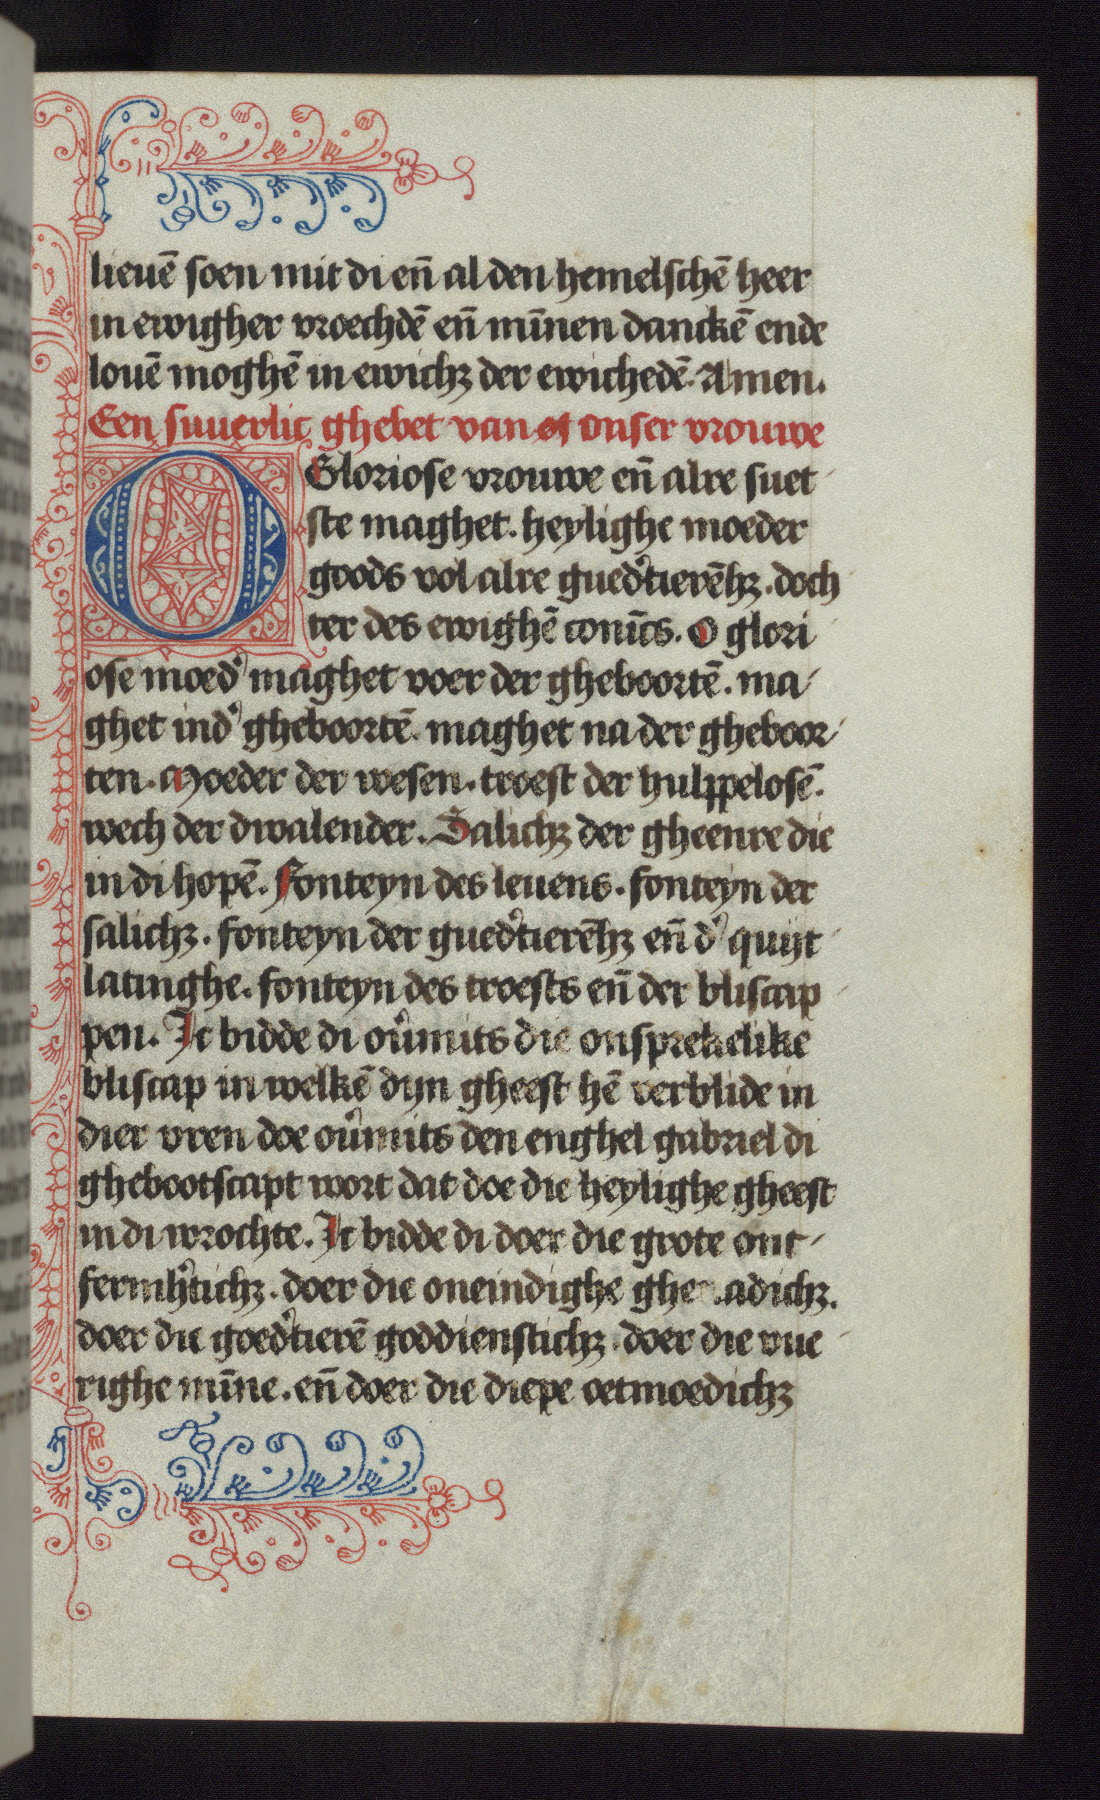 lieuē soen mit di en̄ al den hemelschē heer
in ewigher vroechdē en̄ mīnen danckē ende
louē moghē in ewichꝫ der ewichedē. Amen.
Een suuerlic ghebet van onser vrouwe
O Gloriose vrouwe en̄ alre suet
ste maghet. heylighe moeder
goods vol alre guedʼtierēhꝫ. doch
ter des ewighē conīcs. O glori
ose moedʼ maghet voer der gheboortē. ma
ghet indʼ gheboortē. maghet na der gheboor
ten. Moeder der wesen. troest der hulppelosē.
wech der dwalender. Salichꝫ der gheenre die
in di hopē. Fonteyn des leuens. fonteyn der
salichꝫ. fonteyn der guedʼtierēhꝫ en̄ dʼ quijt
latinghe. fonteyn des troests en̄ der bliscap
pen. Ic bidde di ouʼmits die onsprekelike
bliscap in welkē dijn gheest hē verblide in
dier vren doe ouʼmits den enghel gabriel di
ghebootscapt wort dat doe die heylighe gheest
in di wrochte. Ic bidde di doer die grote ont
fermhʼtichꝫ. doer die oneindighe ghenadichꝫ.
doer die goedʼtierē goddienstichꝫ. doer die vue
righe mīne. en̄ doer die diepe oetmoedichꝫ